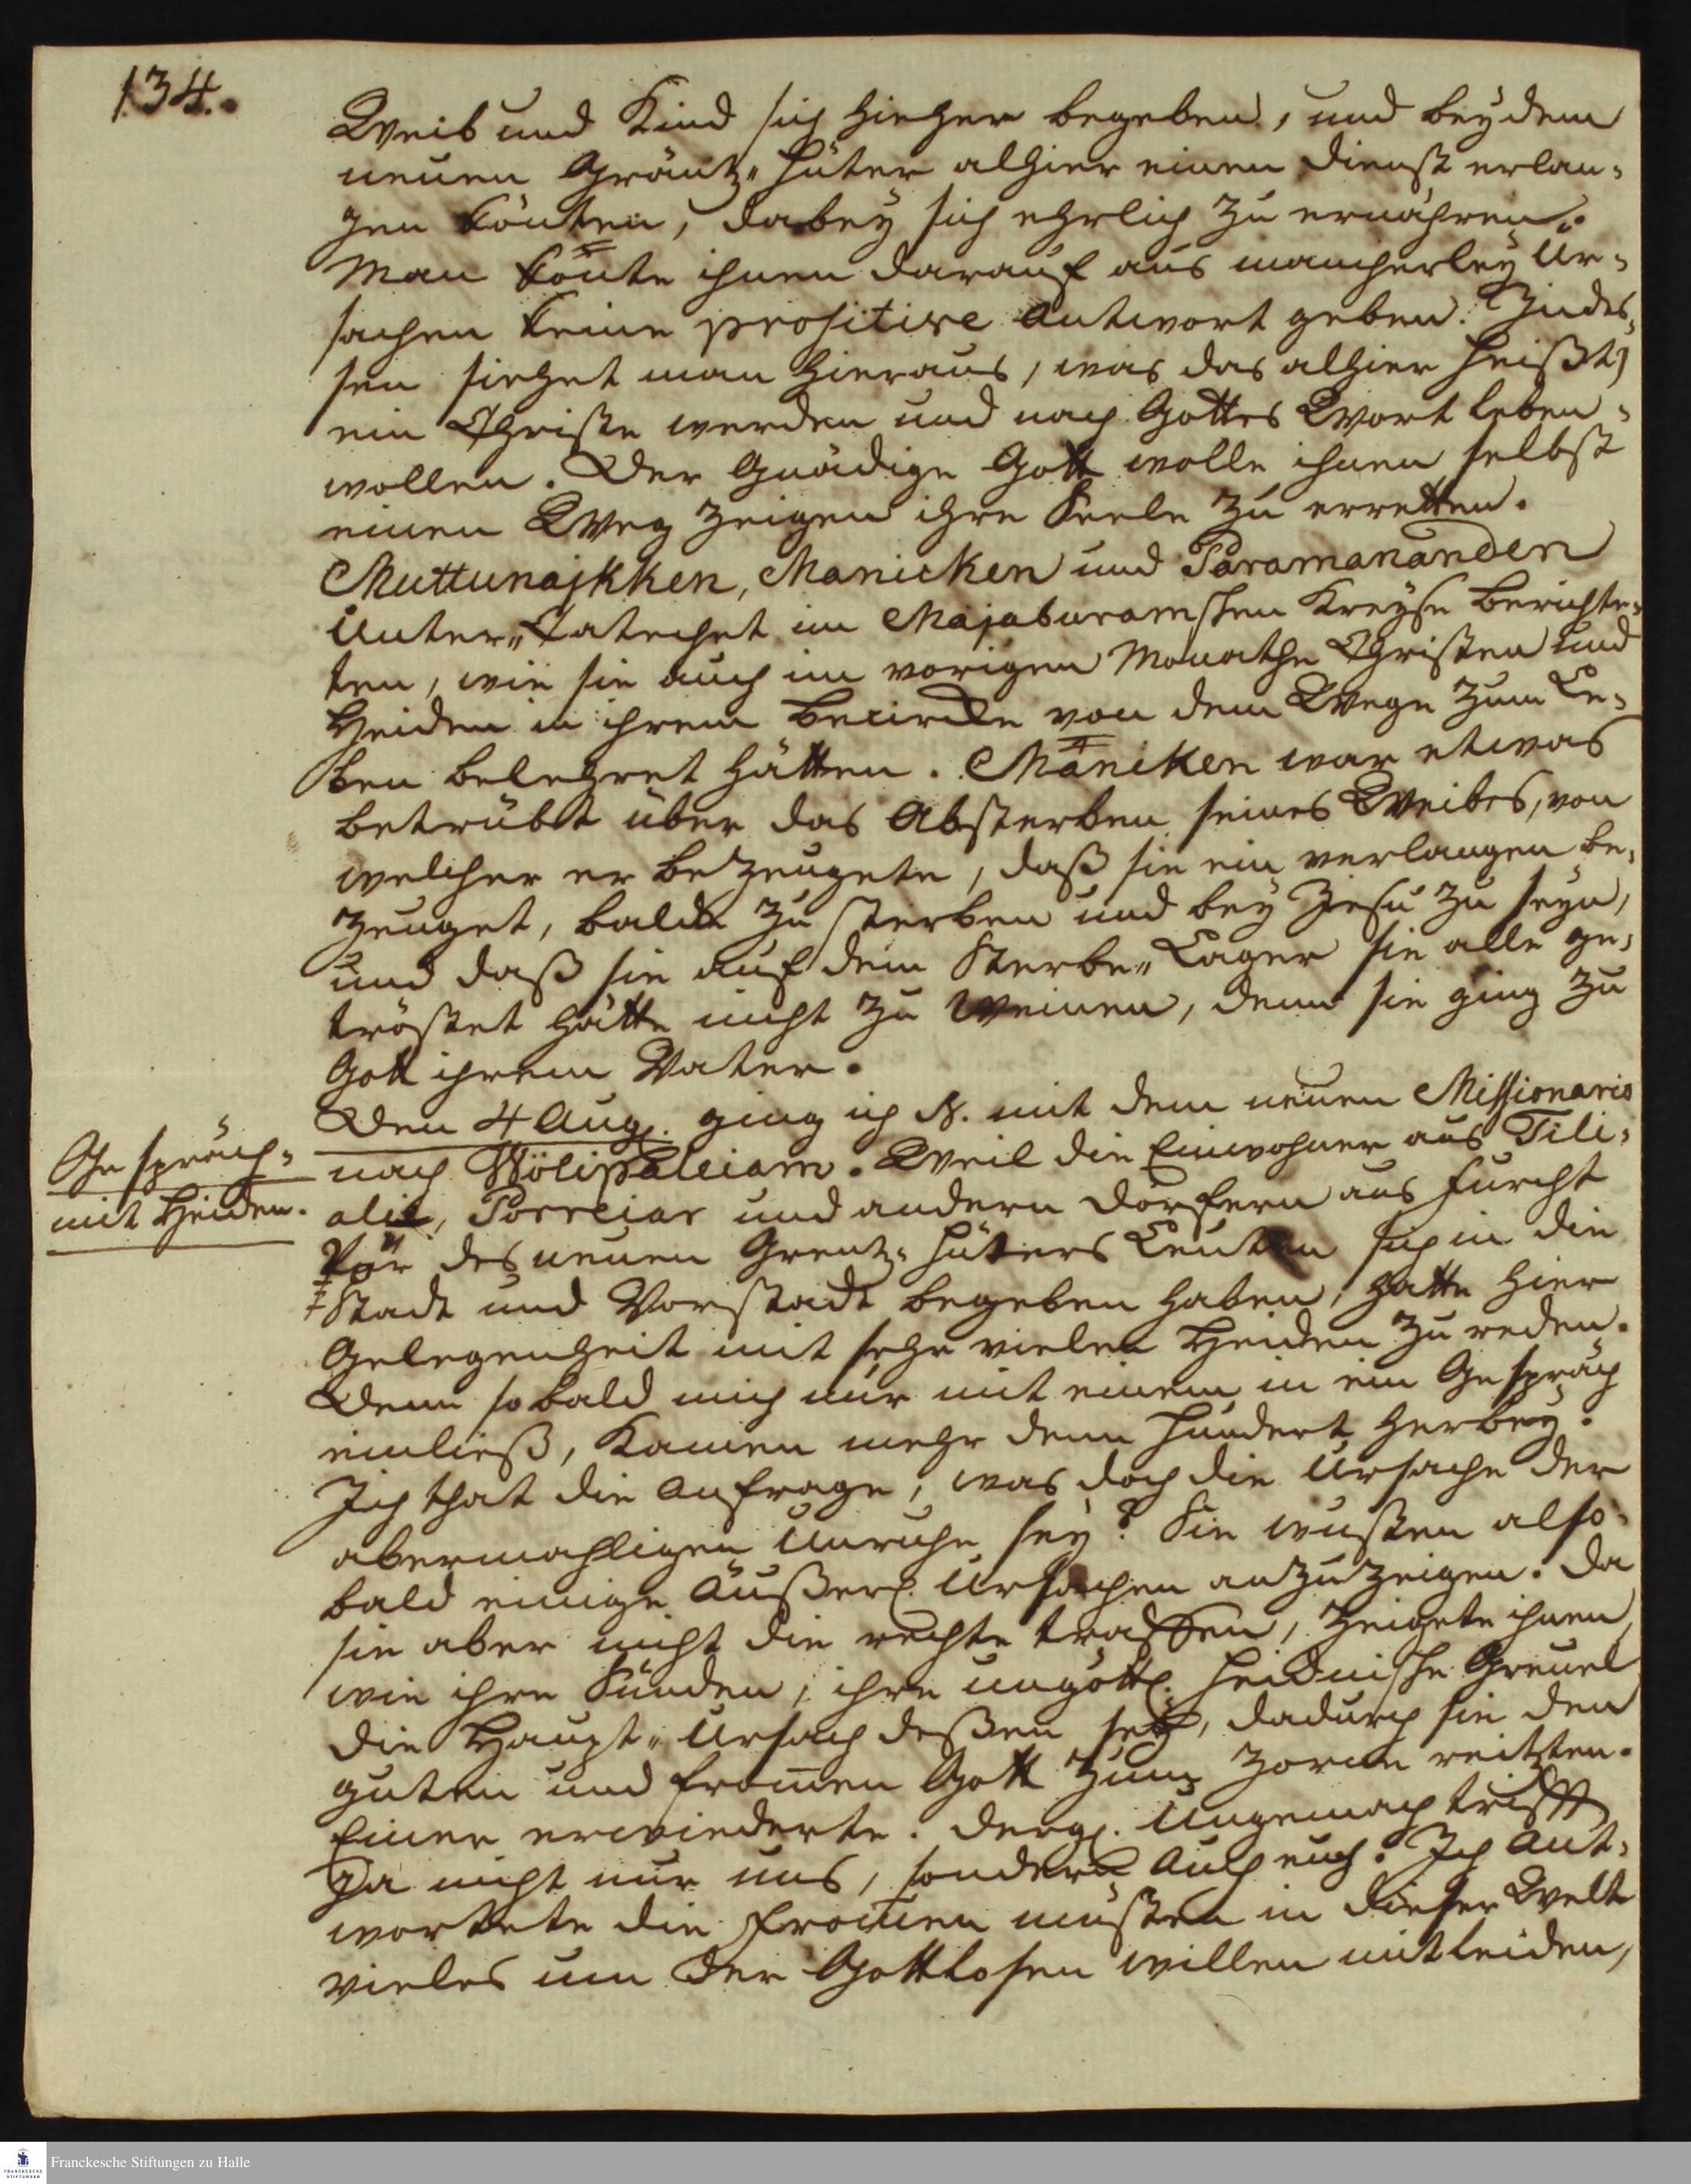 134.
Weib und Kind sich hieher begeben, und bey dem
neuen Gräntz-Hüter alhier einen Dienst erlan-
gen könten, dabey sich ehrlich zu ernähren.
Man konte ihnen darauf aus mancherley Ur-
sachen keine prositive Antwort geben. Indes-
sen siehet man hieraus, was das alhier heißt,
ein Christe werden und nach Gottes Wort leben
wollen. Der Gnädige Gott wolle ihnen selbst
einen Weg zeigen ihre Seele zu erretten.
Muttunajkken, Manicken und Paramananden
Unter-Catechet im Majaburamschen Kreyse berichte-
ten, wie sie auch im vorigen Monathe Christen und
Heiden in ihrem Becircke von dem Wege zum Le-
ben belehret hätten. Maniken war etwas
betrübt über das Absterben seines Weibes, von
welcher er bezeugete, daß sie ein verlangen be-
zeuget, balde zu sterben und bey Jesu zu seyn,
und daß sie auf dem Sterbe-Lager sie alle ge-
tröstet hätte nicht zu weinen, denn sie ging zu
Gott ihrem Vater.
Den 4 Aug. ging ich N. mit dem neuen Missionario
Gespräch
mit Heiden.
nach Wölipaleiam. Weil die Einwohner aus Tili-
ali, Porreiar und andern Dörfern aus Furcht
Vor des neuen Grentz-Hüters Leuten sich in die
Stadt und Vorstadt begeben haben, hatte hier
Gelegenheit mit sehr vielen Heiden zu reden.
Denn so bald mich nur mit einem in ein Gespräch
einließ, kamen mehr denn hundert herbey.
Ich that die Anfrage, was doch die Ursache der
abermahligen Unruhe sey? Sie wusten also-
bald einige äußerl. Ursachen anzuzeigen. Da
sie aber nicht die rechte traffen, zeigete ihnen,
wie ihre Sünden, ihre ungöttl. heidnische Greuel
die Haupt-Ursach deßen sey, dadurch sie den
guten und fromen Gott zum Zorne reitzten.
Einer erwiederte. Dergl. Ungemach trifft
Ja nicht nur uns, sondern Auch euch. Ich Ant-
wortete die Fromen müsten in dieser Welt
vieles um der Gottlosen willen mitleiden,
Franckesche Stiftungen zu Halle